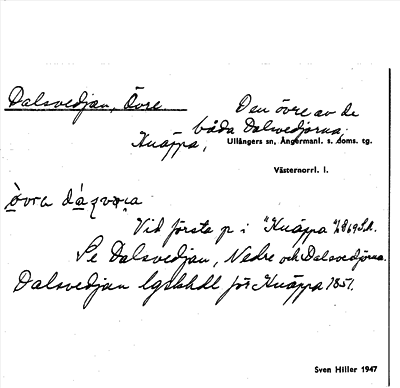 Dalsvedjan, Övre
Den övre av de
båda Dalsvedjorna,
Knäppa, Ullångers sn, Ångermanl. s. doms. tg.
Västernorrl. l.
Vid första p i "Knäppa"
Se Dalsvedjan, Nedre och Dalsvedjorna.
Dalsvedjan lgskhdl för Knäppa 1851.
Sven Hiller 1947